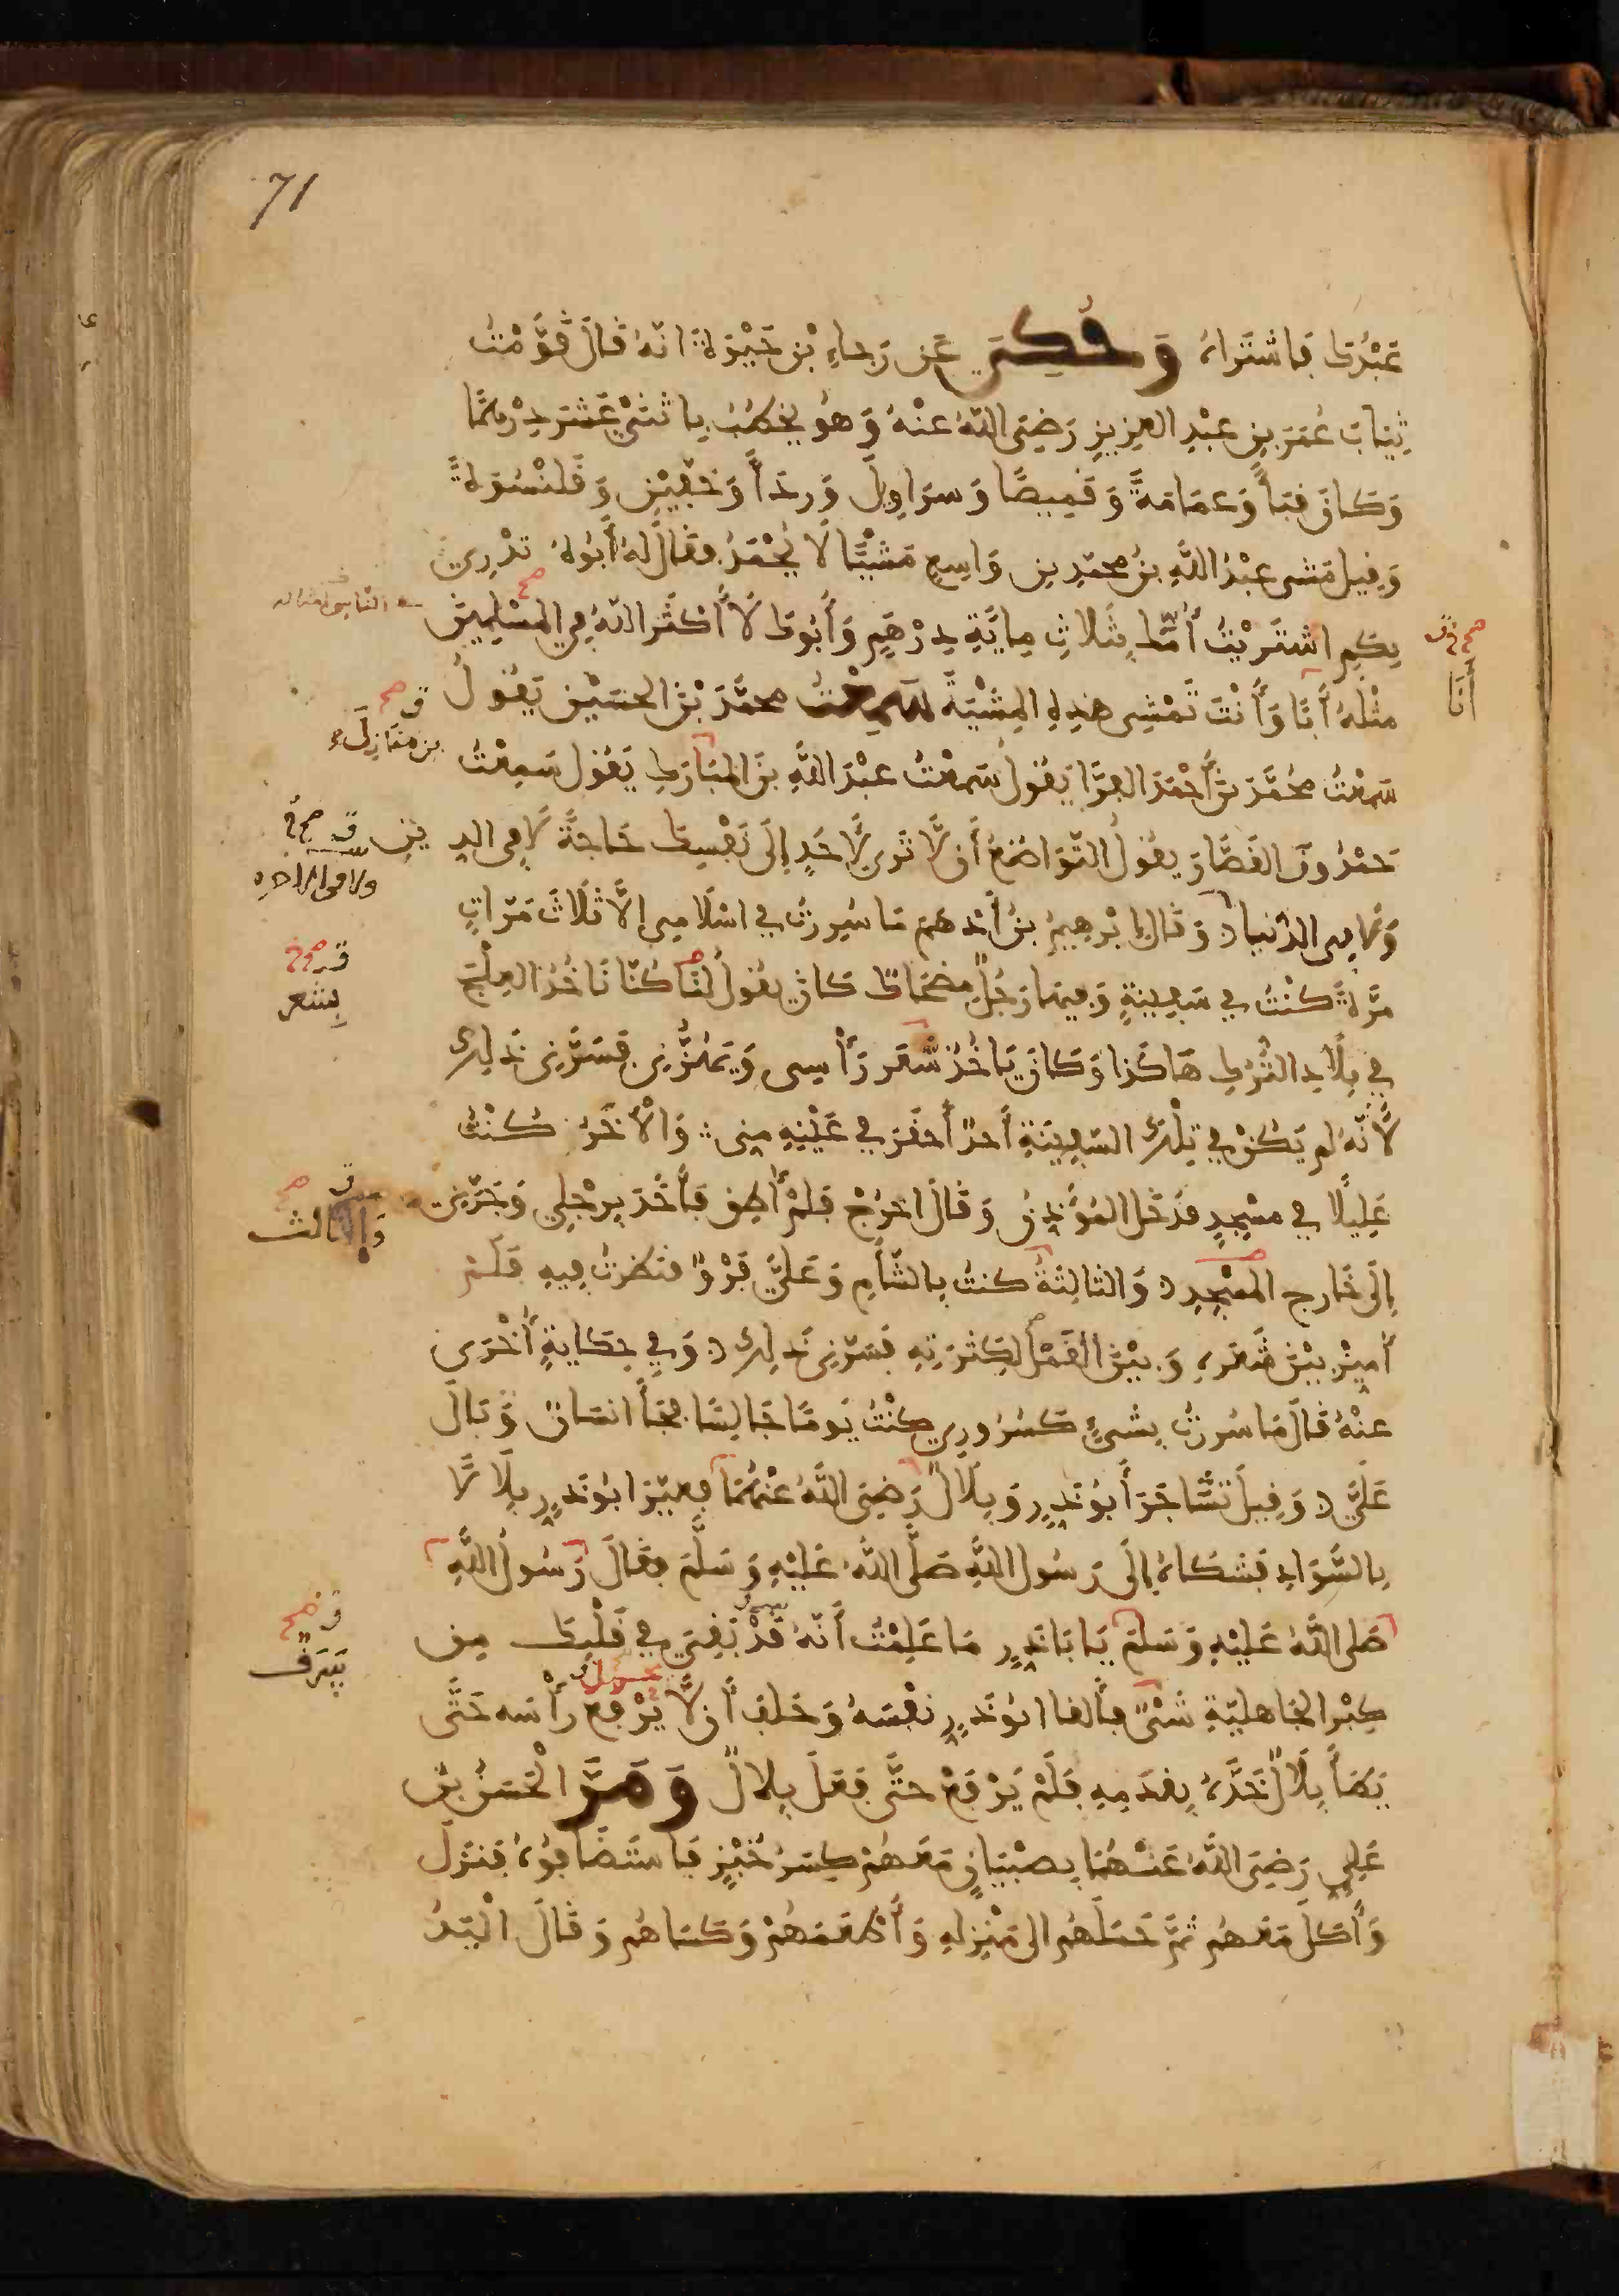 71
عَبْدُكَ فَاشْتَرَاهُ وَحُكِيَ عَن رَجَاءِ بْنِ حَيْوَةَ انّهُ قَالَ قَوَّمْتُ
ثِيَابَ عُمَرَ بنِ عَبْدِ العزِيزِ رَضِيَ اللهُ عنْهُ وَهوَ يخطُبُ بِاثنَيْ عَشَرَ دِرْهَمًا
وَكَانَ قبَاً وَعمَامَةً وَقمِيصًا وَسرَاوِيلَ وَردَاً وَخفّيْنِ وَقَلَنْسُوَةً
وَقِيلَ مَشى عبْدُ اللهِ بنُ محمّدِ بنِ وَاسِعٍ مَشْيًا لَا يُحْمَدُ فقَالَ لهُ أَبُوهُ تدْرِي
بِكَمِ اشتَرَيْتُ أُمَّكَ بِثَلاثِ مِايَةِ دِرْهَمٍ وَأَبُوكَ لَا أَكْثَرَ اللهُ فِي المسْلِمِينَ
صح
مثْلهُ أَنَا وَأَنْتَ تَمْشِى هذِهِ المِشْيَةَ سَمِعْتُ محمَّدَ بْنَ الحسَيْنِ يَقُولُ
صح ق
أَنَا
ق صح
بن مَنَازِلَ
سَمِعْتُ محُمَّدَ بنَ أَحْمَدَ الفرَّا يَقُولُ سَمعْتُ عبْدَ اللهِ بنَ المبَارَكِ يَقُول سَمِعْتُ
حَمْدُونَ القَصَّارَ يقُولُ التّوَاضُعُ أَن لَّا تَرى لِأَحَدٍ إلَى نَفْسِكَ حَاجَةً لَا فِى الدِينِ
ق صح
ولا في الاخره
وَلَا فِى الدُنيا وَقَالَ إِبْرهِيمُ بنُ أَدْهَمَ مَا سُرِرتُ في اسْلَامِى إِلَّا ثَلَاثَ مَرّاتٍ
مرَّةً كنْتُ في سَفِينَةٍ وَفيهَا رَجُلٌ مِضْحَاكٌ كَانَ يقُولُ لنَا كُنّا نَاخُذُ العِلْجَ
ق صح
بِشَعر
في بِلَادِ التُّرْكِ هَاكَذَا وَكَانَ يَاخُذُ شَعَرَ رَأْسِى وَيَهُزُّنِى فَسَرَّنِى ذَلِكَ
لِأَنّهُ لَم يَكُنْ في تِلْكَ السَفِينَةِ أَحدٌ أَحقَرَ في عَيْنِهِ مِنى وَالْأُخَرَ كُنْتُ
عَلِيلًا في مسْجِدٍ فدَخَلَ المُؤَذِنُ وَقَالَ اخرُجْ فَلمْ أُطِق فَأَخَذَ بِرِجْلِي وَجَرَّنِى
ق صح
وَالثَالث
إِلَى خَارج المسْجِدِ وَالثالِثةُ كنتُ بِالشَّأمِ وَعَلىَّ فَرْوٌ فنَظرتُ فِيهِ فَلَمْ
أَمِيزْ بيْنَ شَعَرِهِ وَبيْنَ القَمْلِ لِكَثرَتِهِ فَسَرّنِى ذَلِكَ وَفي حِكَايَةٍ أُخْرَى
عنْهُ قَالَ مَا سُررْتُ بِشىْءٍ كَسُرُورِي كنْتُ يَومًا جَالِسًا فجَأَ انسَانٌ وَبَالَ
عَلَيَّ وَقِيلَ تَشَاجَرَ أَبُو ذَرٍّ وَبِلَالٌ رَضِيَ اللهُ عنْهُمَا فعَيّرَ ابُو ذَرٍّ بِلَالًا
بِالسَّوَادِ فَشكَاهُ إِلَى رَسُول اللهِ صَلَّى اللهُ عَليْهِ وَسَلَّمَ فقَالَ رَسُولُ اللهِ
صَلى اللهُ عَليْهِ وَسَلمَ يَا بَا ذَرٍّ مَا عَلِمْتُ أَنّهُ قدْ بَقِيَ في قَلْبِكَ مِن
كِبْرِ الجَاهليّةِ شَىْءٌ فأَلقَا ابُو ذَرٍّ نفْسَهُ وَحَلفَ أَن لَّا يَرْفعَ رأْسَه حَتَّى
يَطَأَ بِلَالٌ خَدَّهُ بِقدَمِهِ فَلَمْ يَرْفعْ حتَّى فَعَلَ بِلالٌ وَمَرَّ الْحَسَنُ بنُ
عَلِىٍ رَضِىَ اللهُ عَنْهُمَا بِصبْيَانٍ مَعَهُمْ كِسَرُ خُبْزٍ فَاسْتَضَافُوهُ فَنزَلَ
وَأَكَلَ مَعَهُم ثمَّ حَمَلَهُم الى مَنْزِلهِ وَأَطْعَمَهُمْ وَكَسَاهُم وَقَالَ الْيَدُ